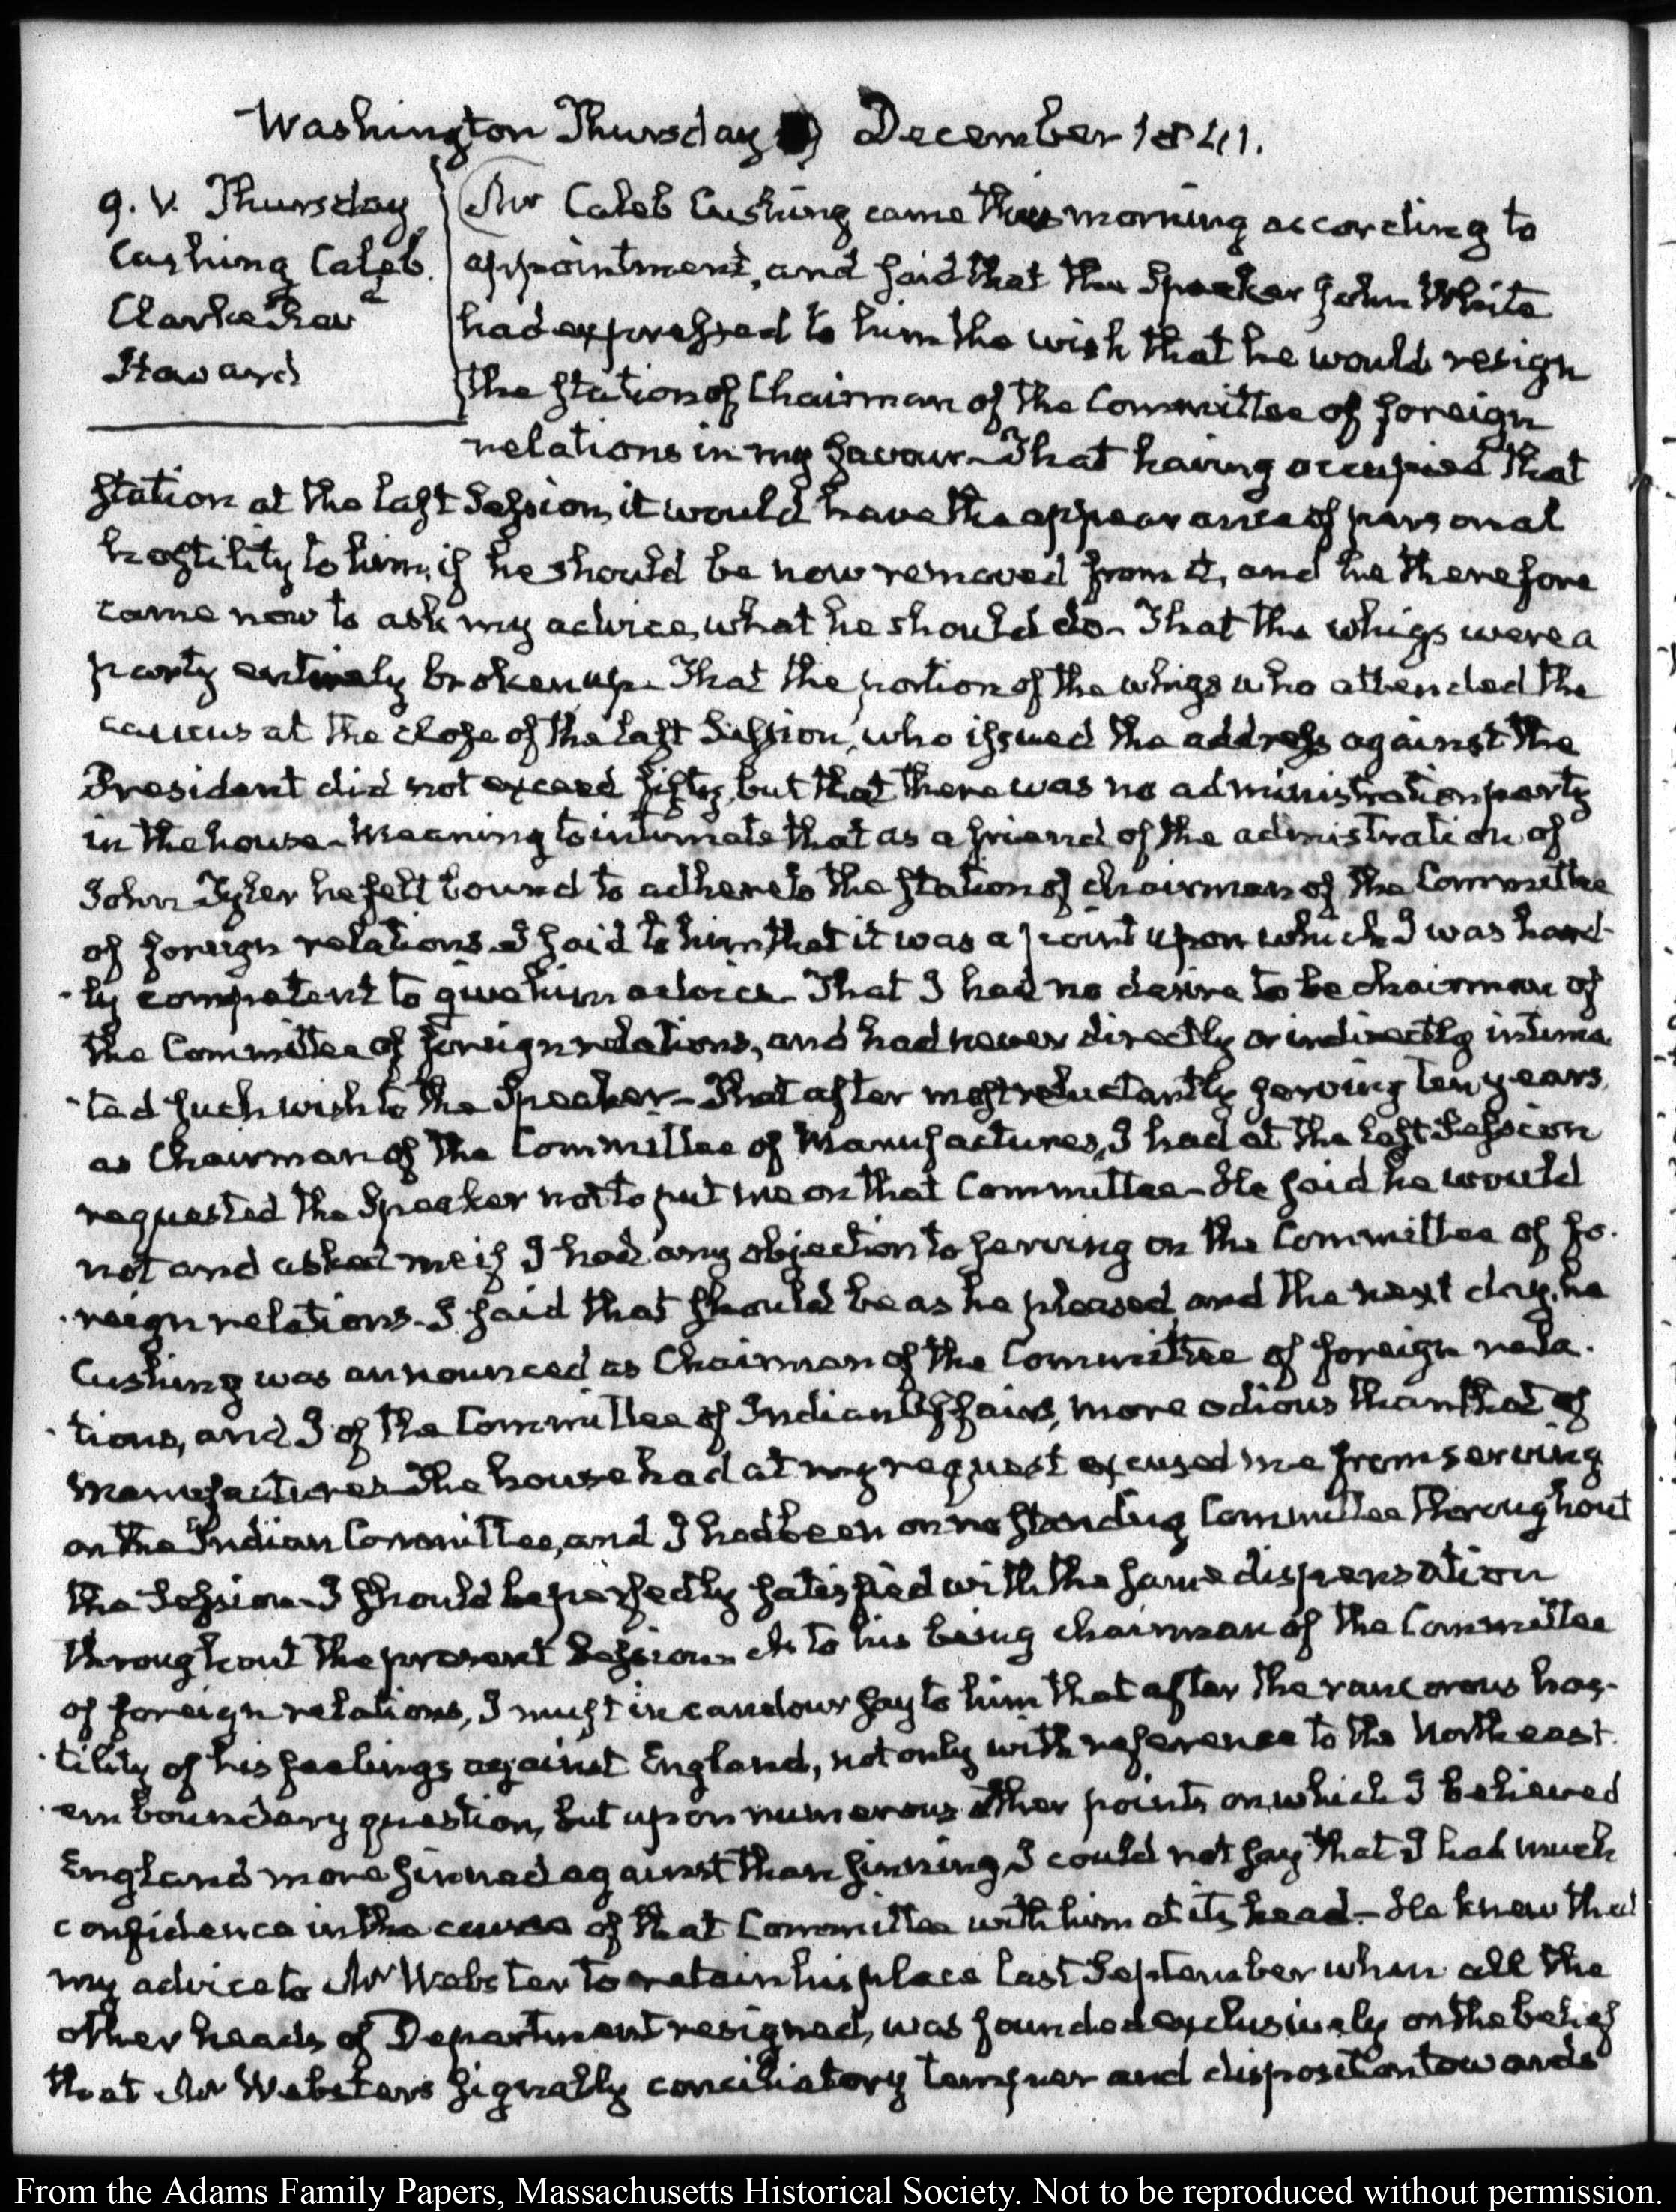 Washington Thursday 9 December 1841.
9. V. Thursday
Cushing Caleb.
Clarke
Howard
Mr Caleb Cushing came this morning according to
appointment, and said that the Speaker John White
had expressed to him the wish that he would resign
the station of Chairman of the Committee of foreign
relations in my favour— That having occupied that
station at the last Session, it would have the appearance of personal
hostility to him, if he should be now removed from it, and he therefore
came now to ask my advice, what he should do— That the whigs were a
party entirely broken up— That the portion of the whigs who attended the
caucus at the close of the last Session, who issued the address against the
President did not exceed fifty, but that there was no administration party
in the house— Meaning to intimate that as a friend of the admistration of
John Tyler he felt bound to adhere to the station of chairman of the Committee
of foreign relations. I said to him, that it was a point upon which I was hard-
-ly competent to give him advice— That I had no desire to be chairman of
the Committee of foreign relations, and had never directly or indirectly intima
-ted such wish to the Speaker— That after most reluctantly serving ten years
as Chairman of the Committee of Manufactures, I had at the last Session
requested the Speaker not to put me on that Committee— He said he would
not and asked me if I had any objection to serving on the Committee of fo-
-reign relations— I said that should be as he pleased, and the next day, he
Cushing was announced as Chairman of the Committee of foreign rela-
-tions, and I of the Committee of Indian Affairs, more odious than that of
manufactures— The house had at my request excused me from serving
on the Indian Committee, and I had been on no standing Committee throughout
the Session— I should be perfectly satisfied with the same dispensation
throughout the present Session— As to his being chairman of the Committee
of foreign relations, I must in candour say to him that after the rancorous hos-
-tility of his feelings against England, not only with reference to the North east-
-ern boundary question, but upon numerous other points on which I believed
England more sinned against than sinning, I could not say that I had much
confidence in the course of that Committee with him at its head— He knew that
my advice to Mr Webster to retain his place last September when all the
other heads of Department resigned, was founded exclusively on the belief
that Mr Websters signally conciliatory temper and disposition towards
From the Adams Family Papers, Massachusetts Historical Society. Not to be reproduced without permission.